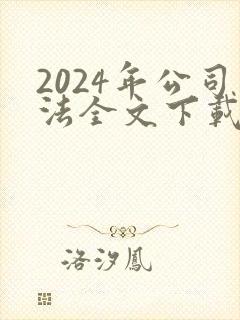 2024年公司
法全文下载
洛汐凤